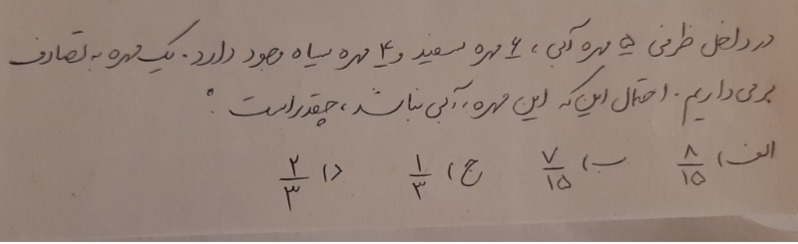 در داخل ظرفی ۵ مهره آبی، ۶ مهره سفید و ۴ مهره سیاه وجود دارد. یک مهره به تصادف
برمی‌داریم. احتمال این که این مهره، آبی نباشد، چقدر است:
الف) ۸/۱۵ ب) ۷/۱۵ ج) ۱/۳ د) ۲/۳